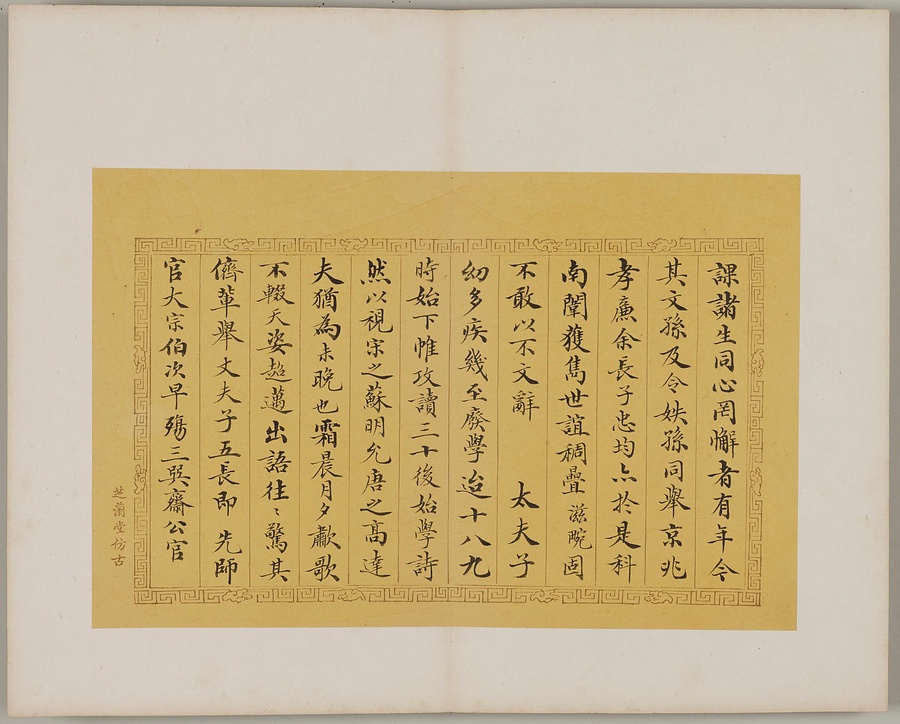 課諸生同心罔懈者有年今
其文孫及令姪孫同舉京兆
孝廉余長子忠均亦於是科
南闈獲雋世誼稠疊滋畹固
不敢以不文辭　太夫子
幼多疾幾至廢學迨十八九
時始下帷攻讀三十後始學詩
然以視宋之蘇明允唐之高達
夫猶為未晚也霜晨月夕歗歌
不輟天姿超邁出語往〻驚其
儕輩舉丈夫子五長即　先師
官大宗伯次早殤三巽齋公官
芝蘭堂仿古